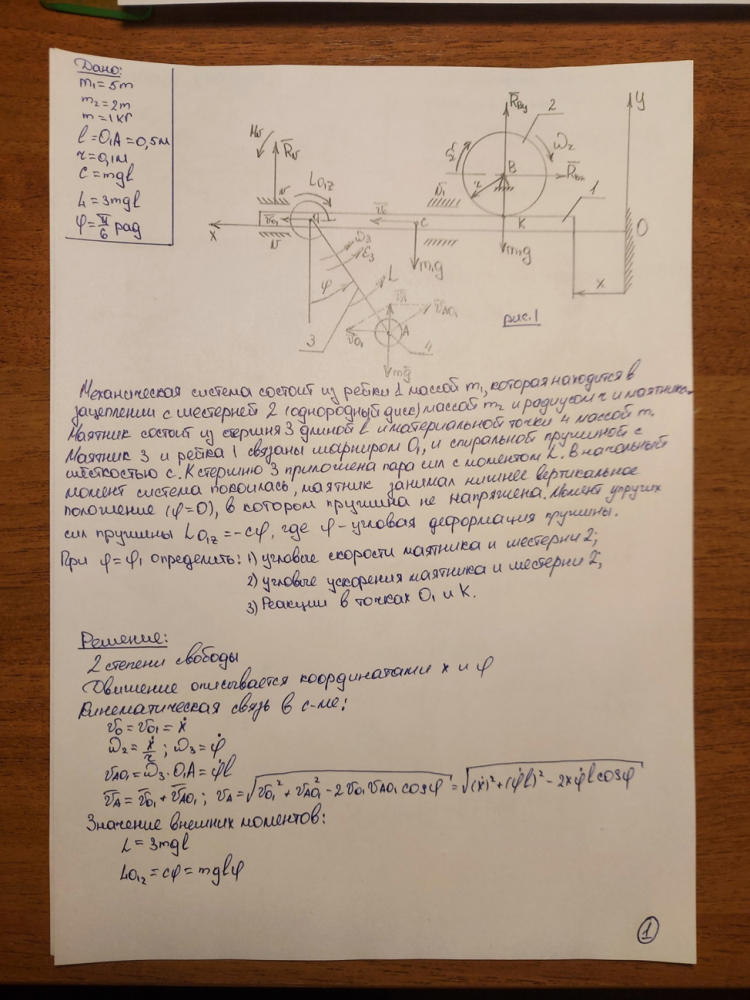 Дано:
m₁ = 5m
m₂ = 2m
m = 1кг
l = O₁A = 0,5м
r = 0,1м
c = mgl
L = 3mgl
φ = π/6 рад
M_N
R̄_N
L_O₁z
N
N
v̄_O₁
v̄
N₁
C
m₁g
ω₃
ε₃
φ
L
3
v̄_A
v̄_AO₁
v̄_O₁
A
4
mḡ
x
R̄_By
2
ω₂
B
R̄_Bx
r
K
m₂g
1
y
O
x
рис.1
Механическая система состоит из рейки 1 массой m₁, которая находится в
зацеплении с шестерней 2 (однородный диск) массой m₂ и радиусом r и маятника.
Маятник состоит из стержня 3 длиной l и материальной точки 4 массой m.
Маятник 3 и рейка 1 связаны шарниром O₁, и спиральной пружиной с
жёсткостью c. К стержню 3 приложена пара сил с моментом L. В начальный
момент система покоилась, маятник занимал нижнее вертикальное
положение (φ=0), в котором пружина не напряжена. Момент упругих
сил пружины L_O₁z = -cφ, где φ - угловая деформация пружины.
При φ=φ₁ определить: 1) угловые скорости маятника и шестерни 2;
2) угловые ускорения маятника и шестерни 2;
3) Реакции в точках O₁ и K.
Решение:
2 степени свободы
Движение описывается координатами x и φ
Кинематическая связь в с-ме:
v₀ = v_O₁ = ẋ
ω₂ = ẋ/r ; ω₃ = φ̇
v_AO₁ = ω₃ · O₁A = φ̇l
v̄_A = v̄_O₁ + v̄_AO₁ ; v_A = √(v_O₁² + v_AO₁² - 2v_O₁ v_AO₁ cosφ) = √((ẋ)² + (φ̇l)² - 2ẋφ̇l cosφ)
Значение внешних моментов:
L = 3mgl
L_O₁z = cφ = mglφ
1